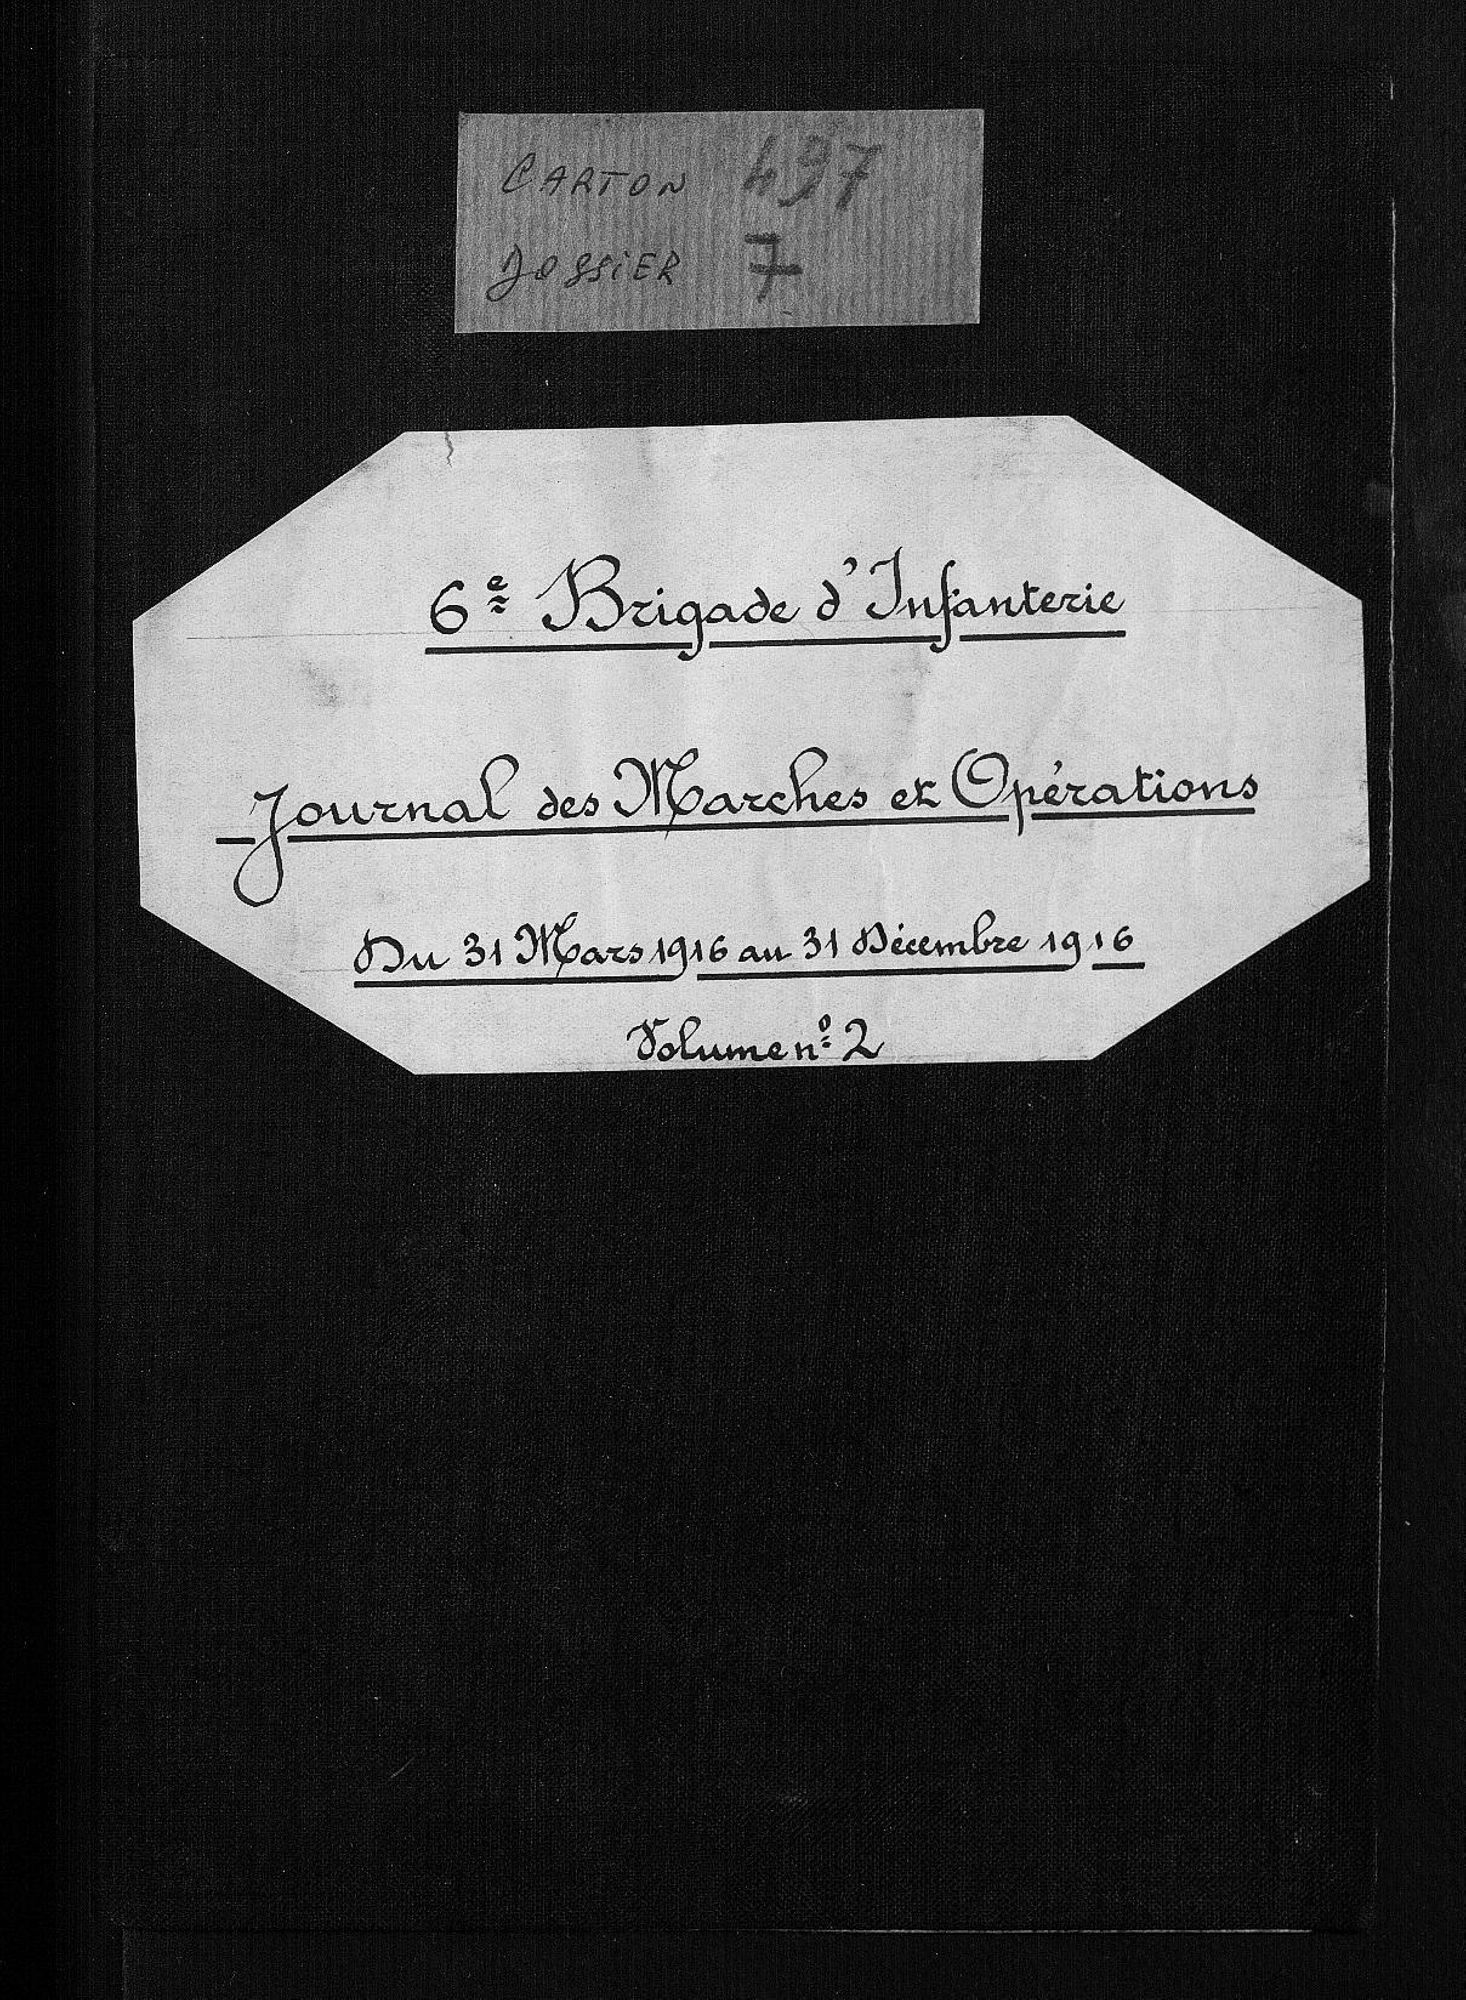 CARTON 497
DOSSIER 7
6e Brigade d'Infanterie
Journal des Marches et Opérations
Du 31 Mars 1916 au 31 Décembre 1916
Volume nº 2